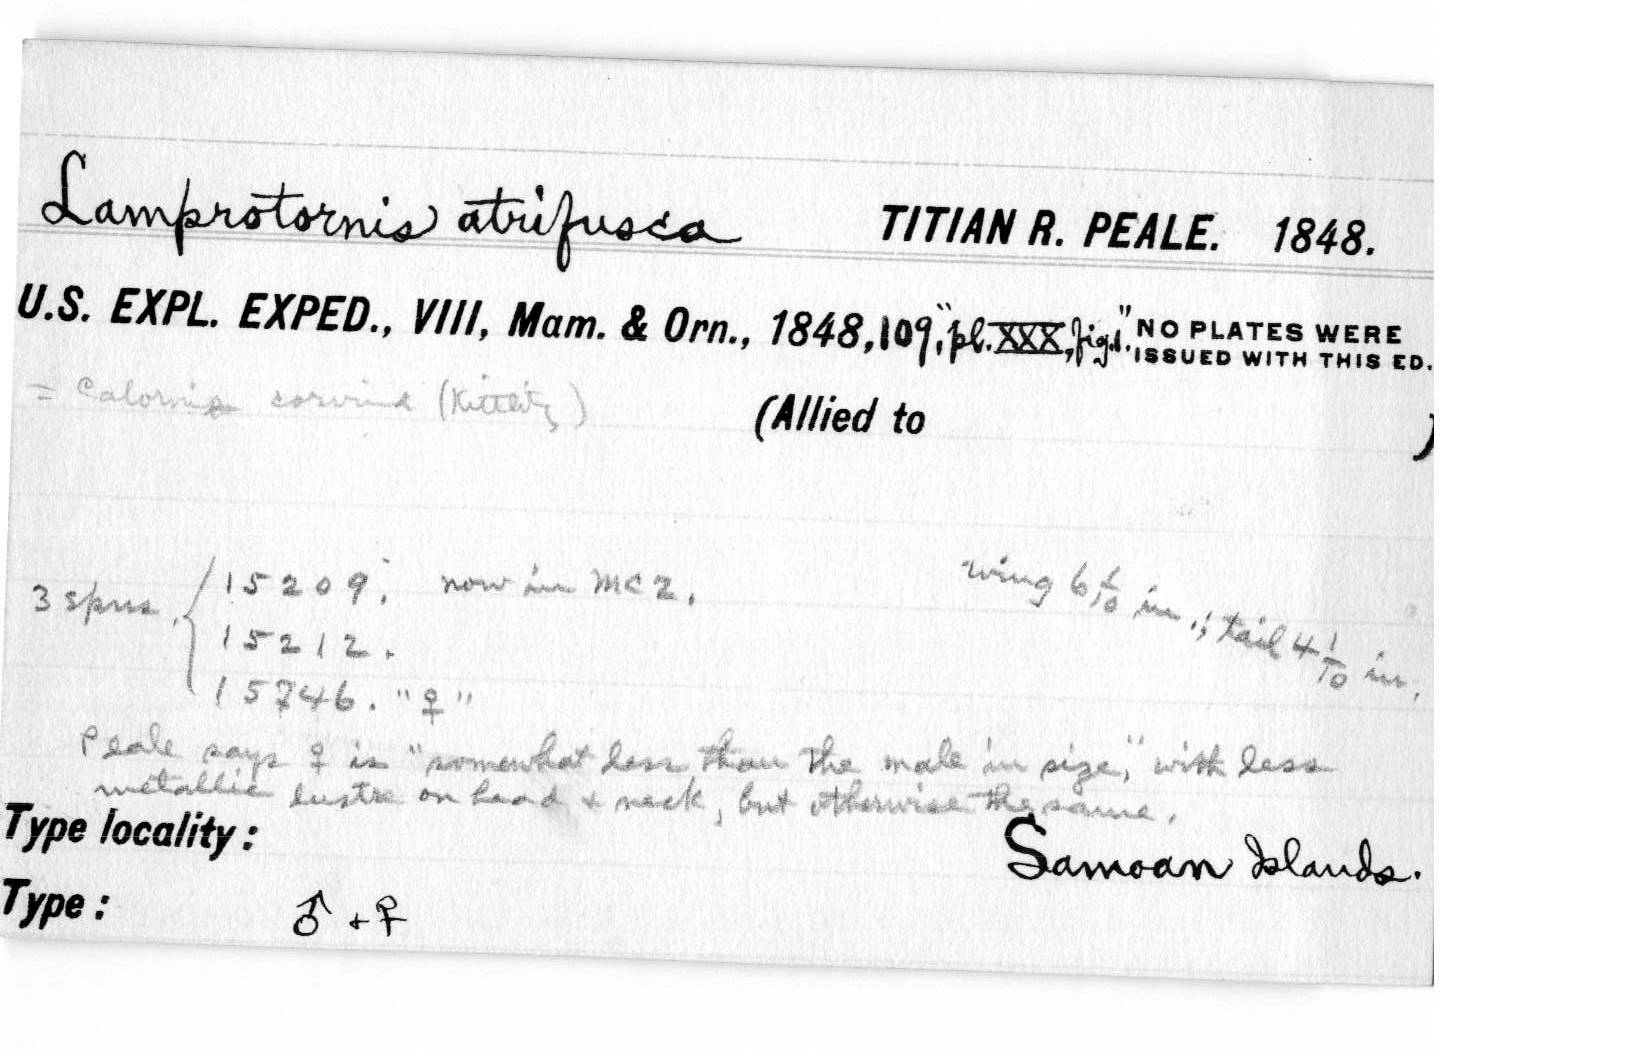 Lamprotornis atrifusca TITIAN R. PEALE. 1848.
U.S. EXPL. EXPED., VIII, Mam. & Orn., 1848, 109, "pl. XXX, fig. 1." NO PLATES WERE ISSUED WITH THIS ED.
= Calornis corvina (Kittlitz)
(Allied to )
3 spms. { 15209; now in MCZ.
15212.
15746. "♀"
wing 6 in.; tail 4 1/10 in.
Peale says ♀ is "somewhat less than the male in size," with less
metallic lustre on head & neck, but otherwise the same.
Type locality: Samoan Islands.
Type: ♂ + ♀